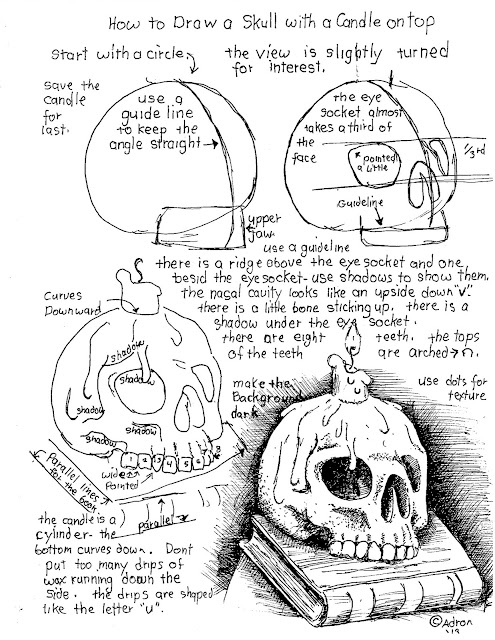 How to Draw a Skull with a Candle on top
Start with a circle
the view is slightly turned
for interest.
save the
candle
for
last.
use a
guide line
to keep the
angle straight
upper
jaw
The eye
socket almost
takes a third of
the
face
pointed
a little
1/3rd
Guideline
use a guideline
there is a ridge above the eye socket and one
besid the eyesocket- use shadows to show them.
the nagal cavity looks like an upside down "V".
there is a little bone sticking up. there is a
shadow under the eye socket.
there are eight teeth. the tops
of the teeth are arched → ∩.
Curves
Downward
shadow
shadow
shadow
shadow
shadow
1 2 3 4 5 6 7 8
wide
pointed
Parallel lines
for the book
parallel
make the
Background
dark
use dots for
texture
the candle is a
cylinder- the
bottom curves down. Dont
put too many drips of
wax running down the
side. the drips are shaped
like the letter "U".
©Adron
'13